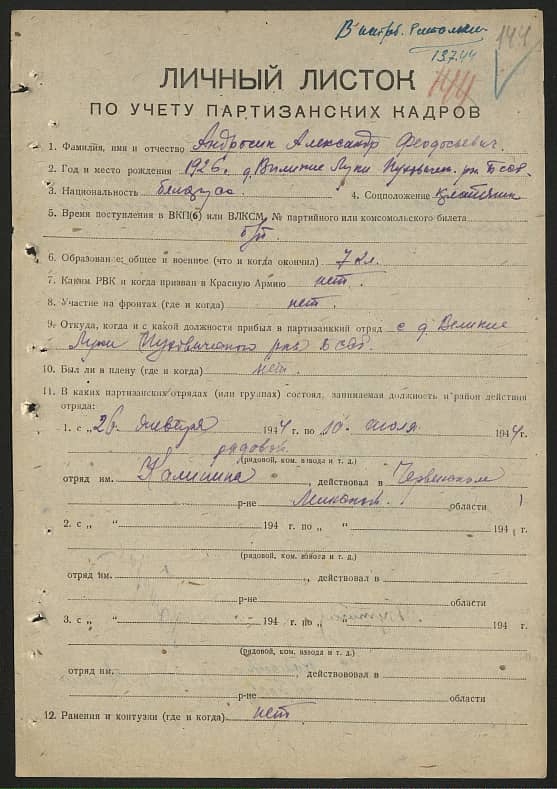 В истреб.
13.7.44
144
144
ЛИЧНЫЙ ЛИСТОК
ПО УЧЕТУ ПАРТИЗАНСКИХ КАДРОВ
1. Фамилия, имя и отчество Андросик Александр Феодосьевич.
2. Год и место рождения 1926. д. Великие Луки Пуховичск. р-на БССР.
3. Национальность белорус 4. Соцположение крестьянин
5. Время поступления в ВКП(б) или ВЛКСМ, № партийного или комсомольского билета
б/п
6. Образование: общее и военное (что и когда окончил) 7 кл.
7. Каким РВК и когда призван в Красную Армию нет.
8. Участие на фронтах (где и когда) нет.
9. Откуда, когда и с какой должности прибыл в партизанский отряд с д. Великие
Луки Пуховичского р-на БССР.
10. Был ли в плену (где и когда) нет.
11. В каких партизанских отрядах (или группах) состоял, занимаемая должность и район действия
отряда:
1. с „ 26 января 1944 г. по 10 июля 1944 г.
рядовой
(рядовой, ком. взвода и т. д.)
отряд им. Калинина, действовал в Червенском
р-не Минской области
2. с „ “ 194 г. по „ “ 194 г.
(рядовой, ком. взвода и т. д.)
отряд им. , действовал в
р-не области
3. с „ “ 194 г. по „ “ 194 г.
(рядовой, ком. взвода и т. д.)
отряд им. , действововал в
р-не области
12. Ранения и контузии (где и когда) нет